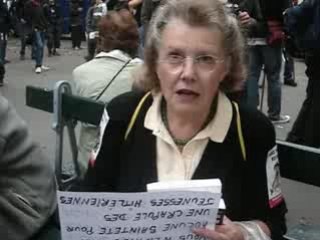 AUCUNE SAINTETE POUR
UNE CRAPULE DES
JEUNESSES HITLERIENNES